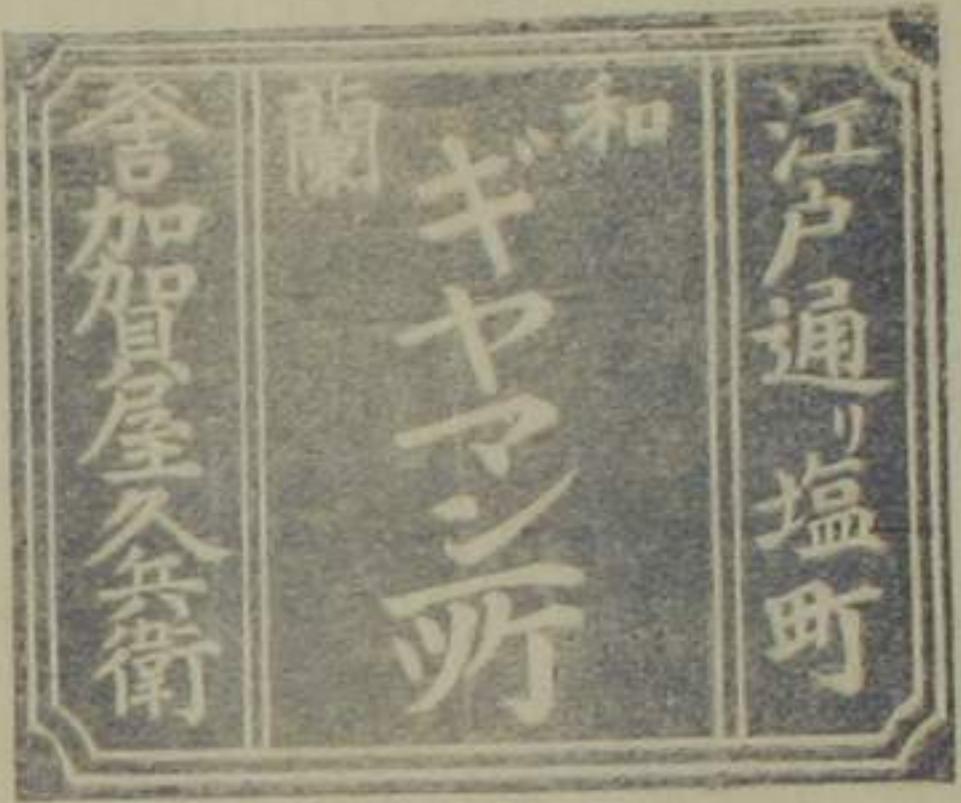 江戸通り塩町
和蘭
ギヤマン所
加賀屋久兵衛